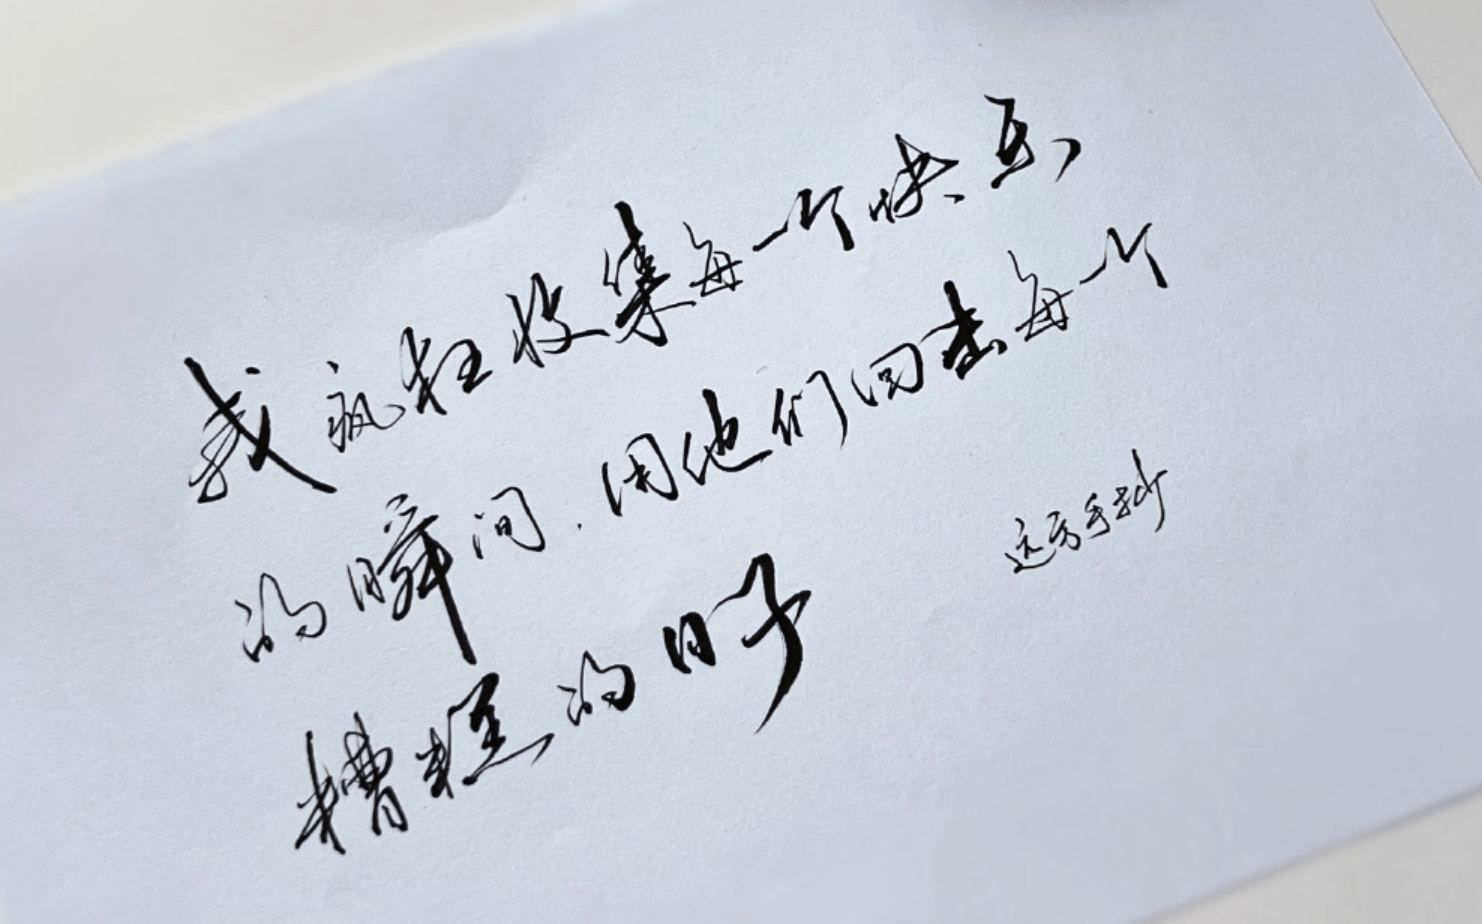 我疯狂收集每一个快乐
的瞬间.用他们回击每一个
糟糕的日子
远方手抄